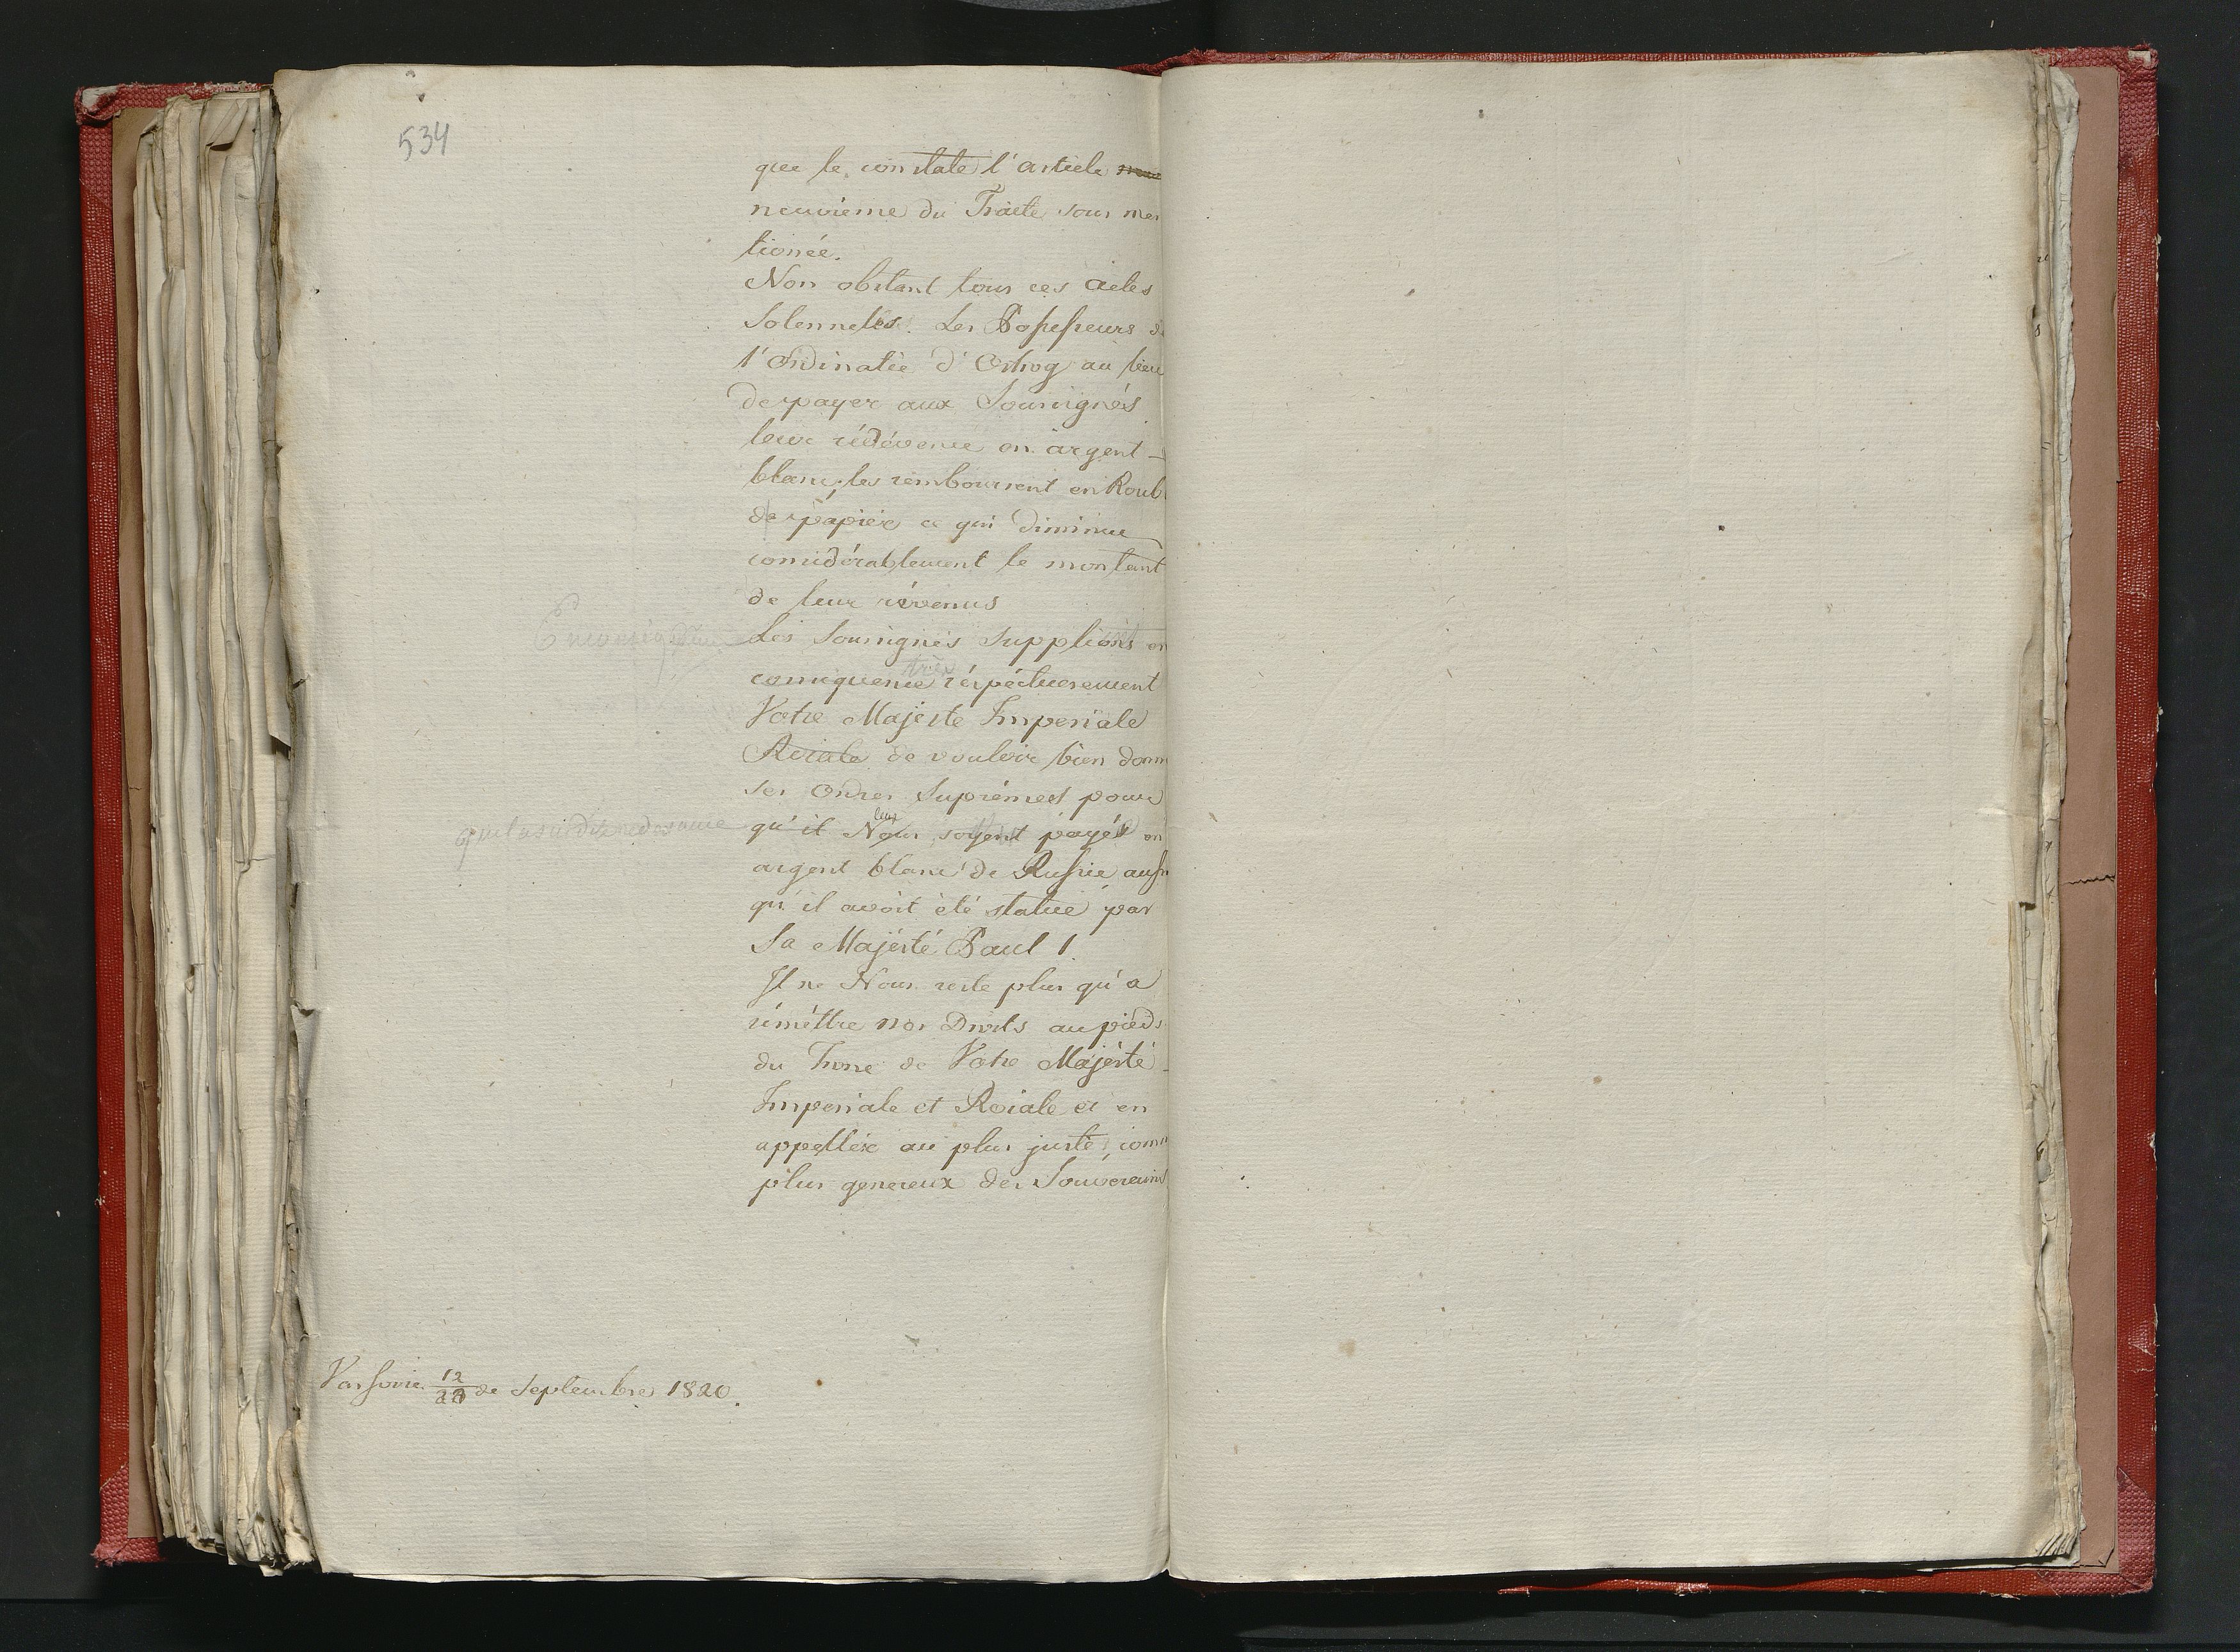 534
que le constate l'article
neuvieme du Traite sous men
tionée.
Non obstant tous ces actes
Solennelles. Les Possesseurs de
l'Ordinatie d'Ostrog au lieu
de payer aux Sousignés
leur rédévence en argent
blanc, les remboursent en Roubl
de papier ce qui diminue
considérablement le montant
de leur révenus
Les Sousignés Supplions en
très
consequence réspéctuesement
Votre Majeste Imperiale
Roiale de vouloir bien donn
ses Ordres Suprémes pour
leur
qu'il Nous soyent payés en
argent blanc de Russie aussi
qu'il avoit été statué par
Sa Majésté Paul 1.
Il ne Nous reste plus qu'a
réméttre nos Droits au pieds
du Trone de Votre Majésté
Imperiale et Roiale et en
appeller au plus juste, comm
plus genereux des Souverains
Varsovie 12/20 de Septembre 1820.